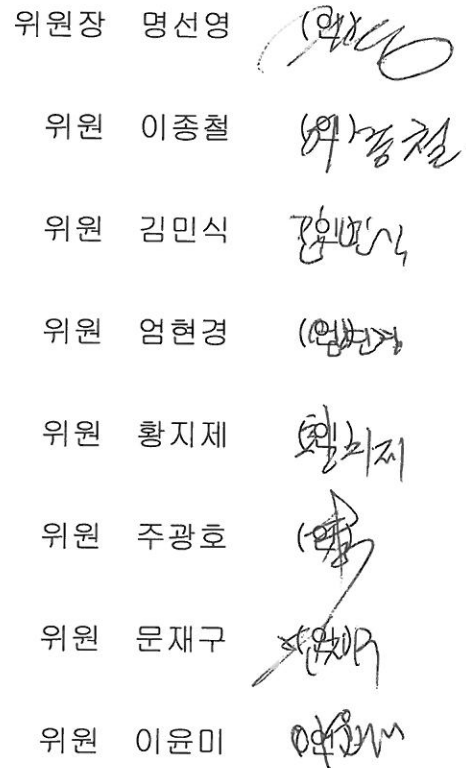 위원장 명선영 (인)
위원 이종철 (인) 이종철
위원 김민식 (인) 김민식
위원 엄현경 (인) 엄현경
위원 황지제 (인)
위원 주광호 (인)
위원 문재구 (인)
위원 이윤미 (인)